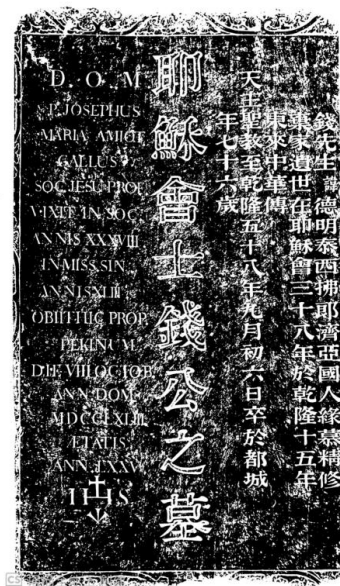 錢先生諱德明泰西拂耶濟亞國人緣慕精修
棄家遺世在耶穌會三十八年於乾隆十五年
東來中華傳
天主聖教至乾隆五十八年九月初六日卒於都城
年七十六歲
耶穌會士錢公之墓
D. O. M
P. JOSEPHUS
MARIA AMIOT
GALLUS
SOC. JESU PROF.
VIXIT IN SOC.
ANNIS XXXVIII
IN MISS. SIN.
ANNIS XLIII
OBIIT HUC PROP
PEKINUM
DIE VIII OCTOB
ANN. DOM.
MDCCLXLIII
ETATIS
ANN. LXXV
IHS